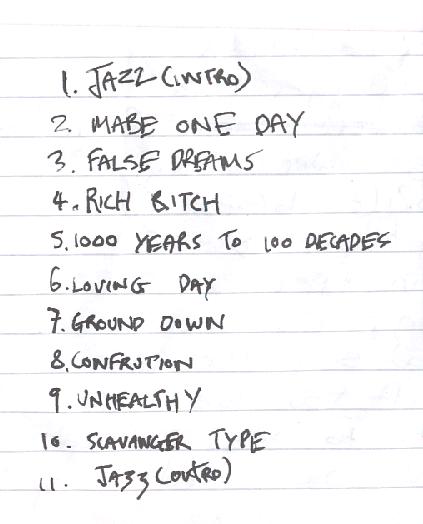 1. JAZZ (INTRO)
2. MABE ONE DAY
3. FALSE DREAMS
4. RICH BITCH
5. 1000 YEARS TO 100 DECADES
6. LOVING DAY
7. GROUND DOWN
8. CONFRUTION
9. UNHEALTHY
10. SCAVANGER TYPE
11. JAZZ (OUTRO)